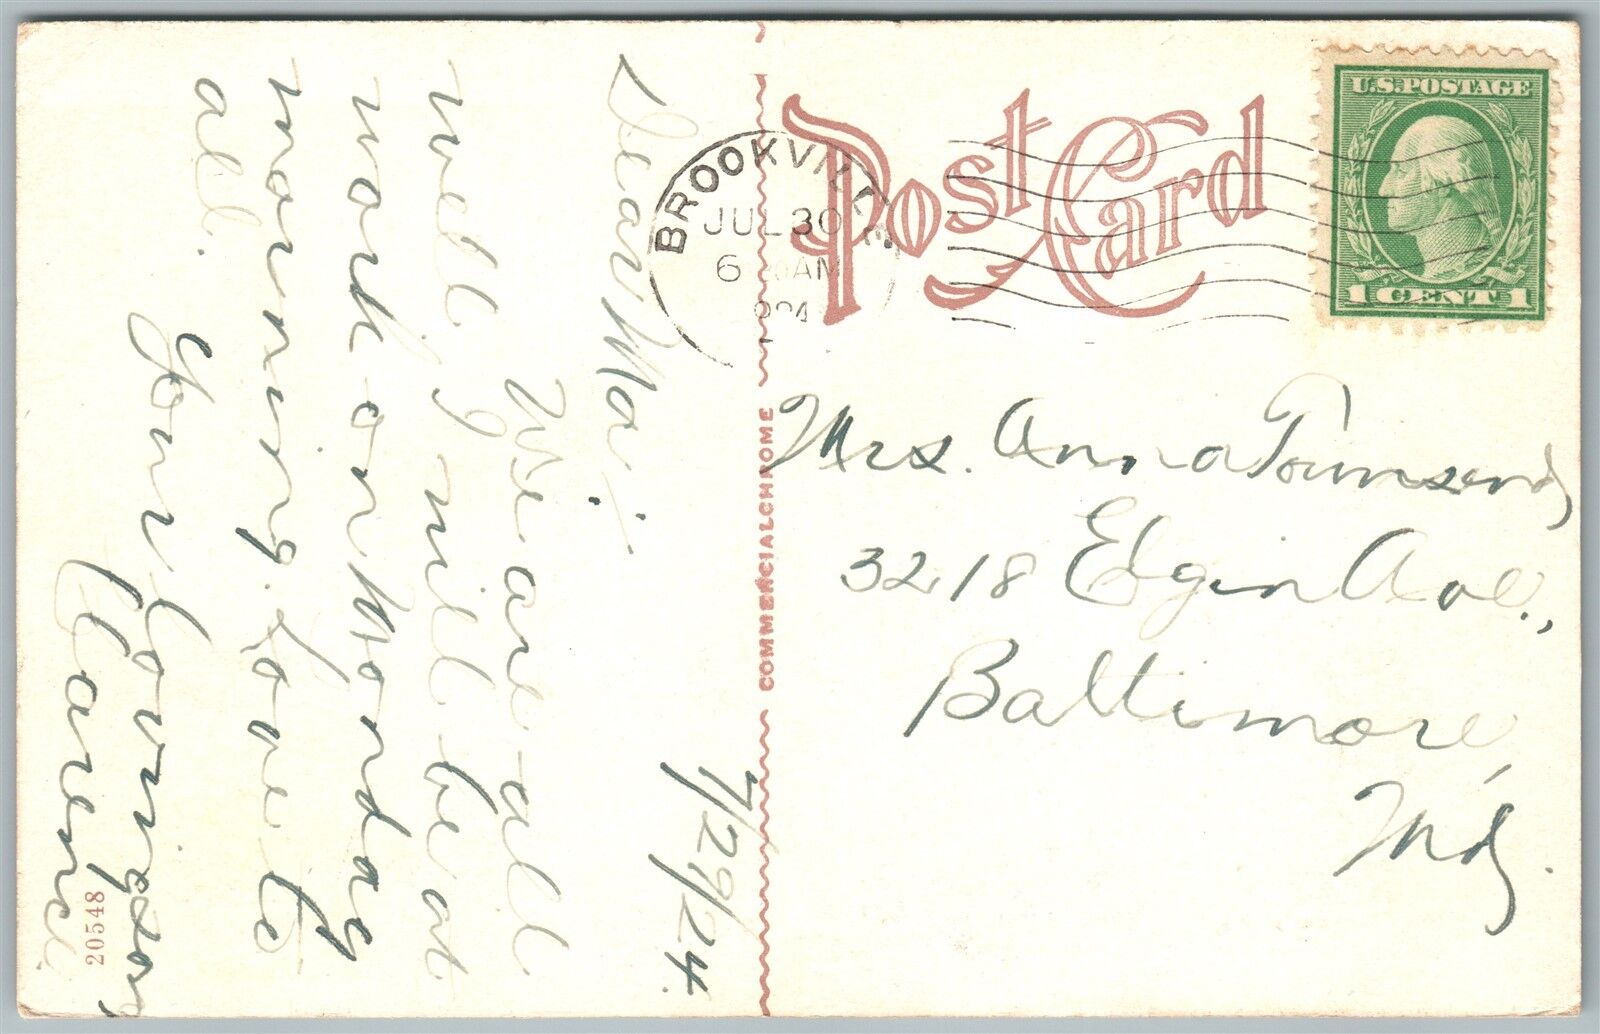 7/29/24.
Dear Ma:-
We are all
well, I will be at
work on Monday
morning. Love to
all.
Your loving son,
Clarence.
20548
COMMERCIALCHROME
Post Card
BROOKVILLE
JUL 30
6 AM
U.S. POSTAGE
1 CENT 1
Mrs. Anna Townsend,
3218 Elgin Ave.,
Baltimore,
Md.